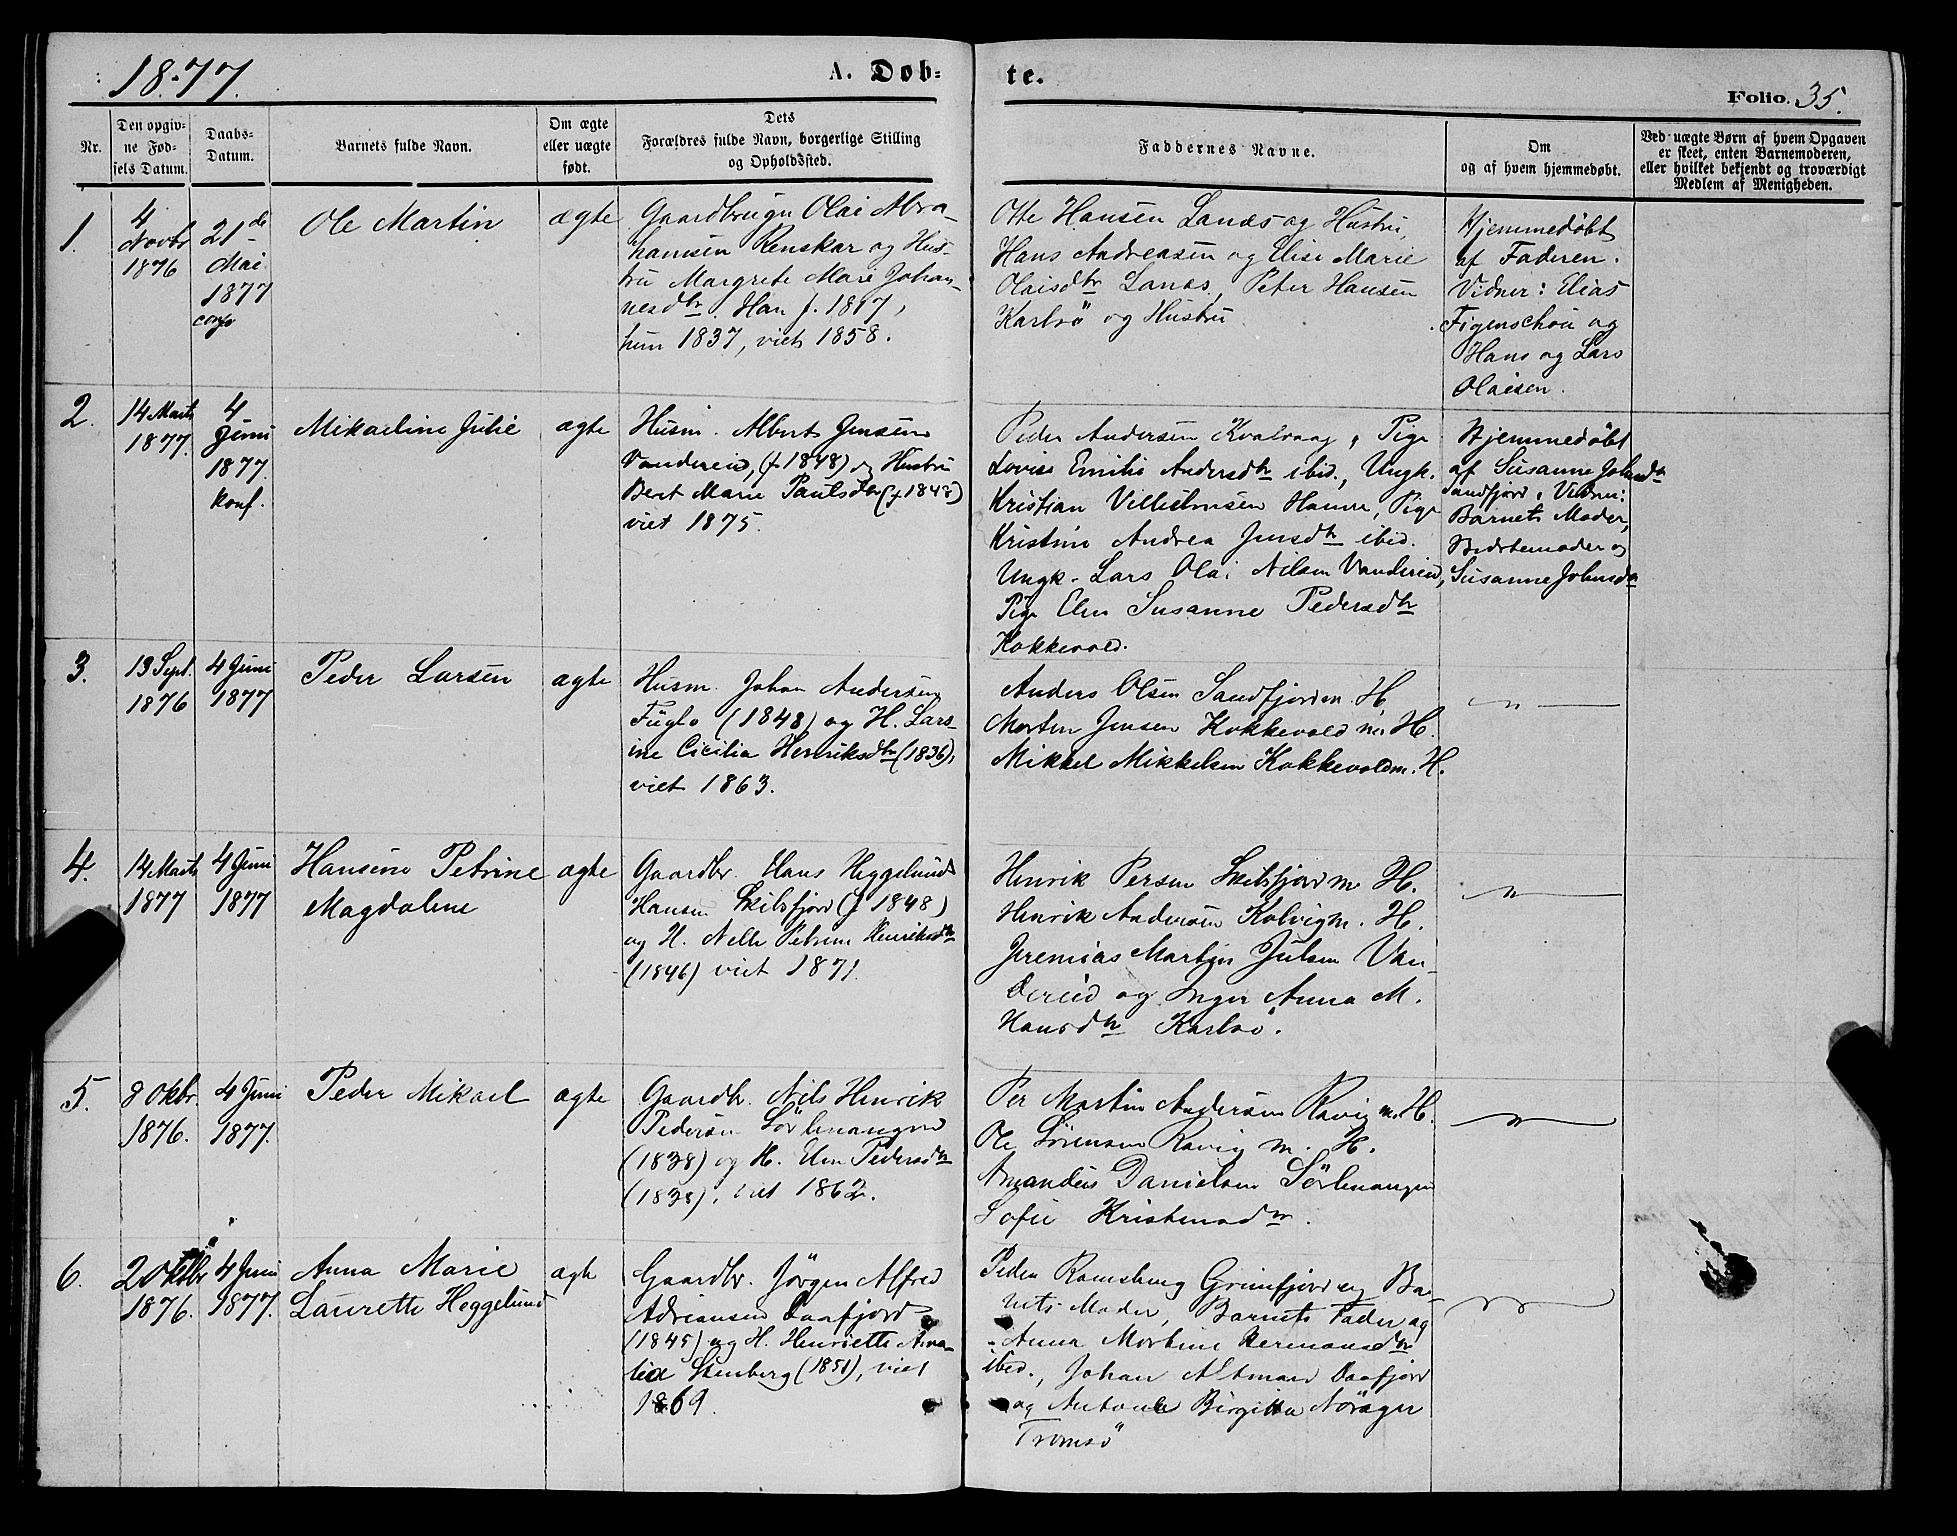 1877.
A. Døb-
te.
Folio. 35.
Nr.
Den opgiv-
ne Fød-
sels Datum.
Daabs-
Datum.
Barnets fulde Navn.
Om ægte
eller uægte
født.
Dets
Forældres fulde Navn, borgerlige Stilling
og Opholdssted.
Faddernes Navne.
Om
og af hvem hjemmedøbt.
Ved uægte Børn af hvem Opgaven
er skeet, enten Barnemoderen,
eller hvilket bekjendt og troværdigt
Medlem af Menigheden.
1.
4
Novbr
1876
21de
Mai
1877
conf
Ole Martin
ægte
Gaardbruger Olai Abra-
hamsen Renskar og Hus-
tru Margrete Marie Johan-
nesdtr. Han f. 1817,
hun 1837, viet 1858.
Otte Hansen Lanæs og Hustru,
Hans Andreasen og Elise Marie
Olaisdtr Lanæs, Peter Hansen
Karlsö og Hustru
Hjemmedøbt
af Faderen.
Vidner: Elias
Figenschou og
Hans og Lars
Olaisen.
2.
14 Marts
1877.
4
Juni
1877
konf.
Mikaeline Julie
ægte
Husm. Albert Jensen
Vandereid, (f 1848) og Hustru
Berit Marie Paulsdtr (f 1848)
viet 1875.
Peder Andersen Kvalvaag, Pige
Lovise Emilie Andersdtr ibid., Ungk.
Kristian Villielmsen Hamre, Pige
Kristine Andrea Jensdtr ibid.
Ungk. Lars Olai Nilsen Vandereid,
Pige Elen Susanne Pedersdtr
Kokkevold.
Hjemmedøbt
af Susanne Johnsdtr
Sandfjord, Vidner:
Barnets Moder,
Bedstemoder og
Susanne Johnsdtr
3.
13 Sept.
1876
4 Juni
1877
Peder Larsen
ægte
Husm. Johan Andersen
Fuglø (1848) og H. Lars-
ine Cicilia Henriksdtr (1836),
viet 1863.
Anders Olsen Sandfjord m. H.
Morten Jensen Kokkevold m. H.
Mikkel Mikkelsen Kokkevold m. H.
— " —
4.
14 Marts
1877
4 Juni
1877
Hansine Petrine
Magdalene
ægte
Gaardbr. Hans Heggelund
Hansen Skibsfjord (f 1848)
og H. Nelle Petrine Henriksdtr
(1846) viet 1871.
Henrik Persen Skibsfjord m. H.
Henrik Andersen Kolvig m. H.
Jeremias Martin Julsen Van-
dereid og Inger Anna M.
Hansdtr Karlsö.
— " —
5.
8 Oktbr.
1876.
4 Juni
1877.
Peder Mikael
ægte
Gaardbr. Nils Henrik
Pedersen Sörlenangen
(1838) og H. Elen Pedersdtr
(1838), viet 1862.
Per Martin Andersen Ravig m. H.
Ole Sörensen Ravig m. H.
Amandus Danielsen Sörlenangen
Sofie Kristensdtr.
— " —
6.
2 Oktbr
1876.
4 Juni
1877.
Anna Marie
Laurette Heggelund
ægte
Gaardbr. Jörgen Alfred
Adriansen Daafjord
(1845) og H. Henriette Ama-
lia Stenberg (1851), viet
1869.
Peder Ramsberg Grunfjord og Bar-
nets Moder, Barnets Fader og
Anna Martine Hermansdtr
ibid., Johan Altmann Daafjord
og Antonie Birgitta Noräger
Tromsö
— " —